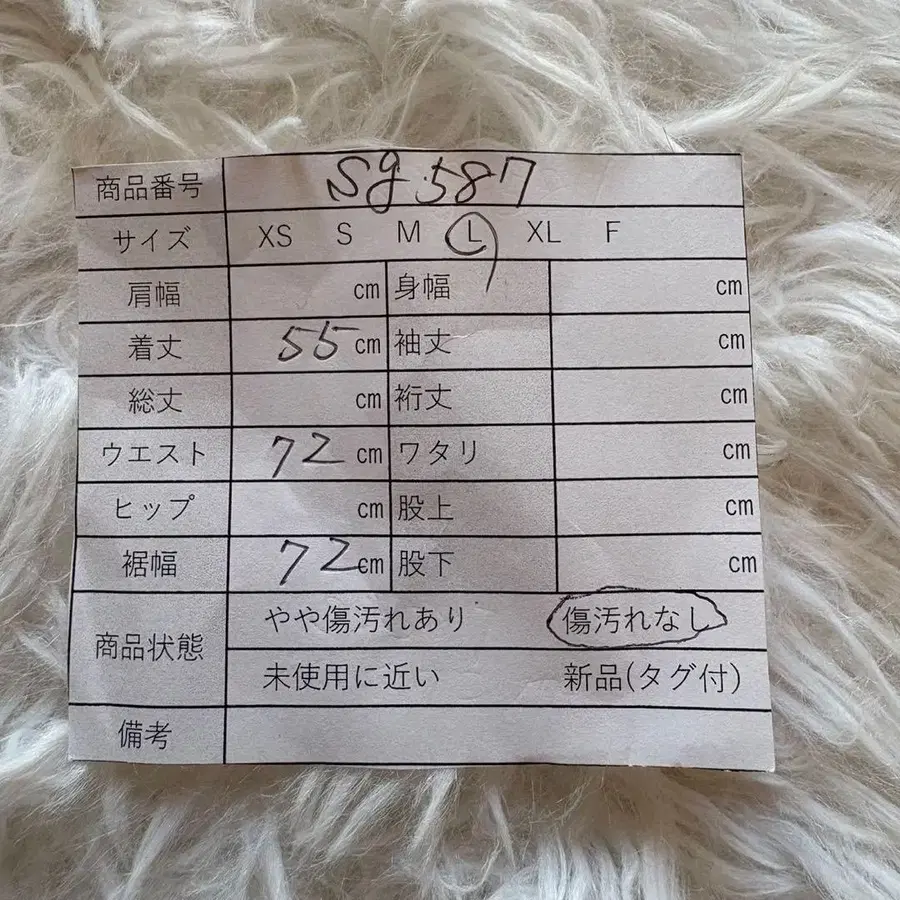 商品番号 sg587
サイズ XS S M L XL F
肩幅 cm 身幅 cm
着丈 55 cm 袖丈 cm
総丈 cm 裄丈 cm
ウエスト 72 cm ワタリ cm
ヒップ cm 股上 cm
裾幅 72 cm 股下 cm
商品状態 やや傷汚れあり 傷汚れなし
未使用に近い 新品(タグ付)
備考